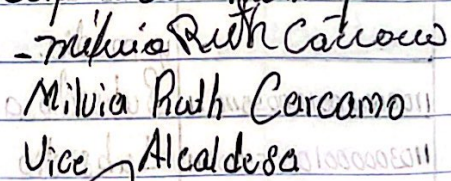 - Milvia Ruth Cárcamo
Milvia Ruth Carcamo
Vice Alcaldesa